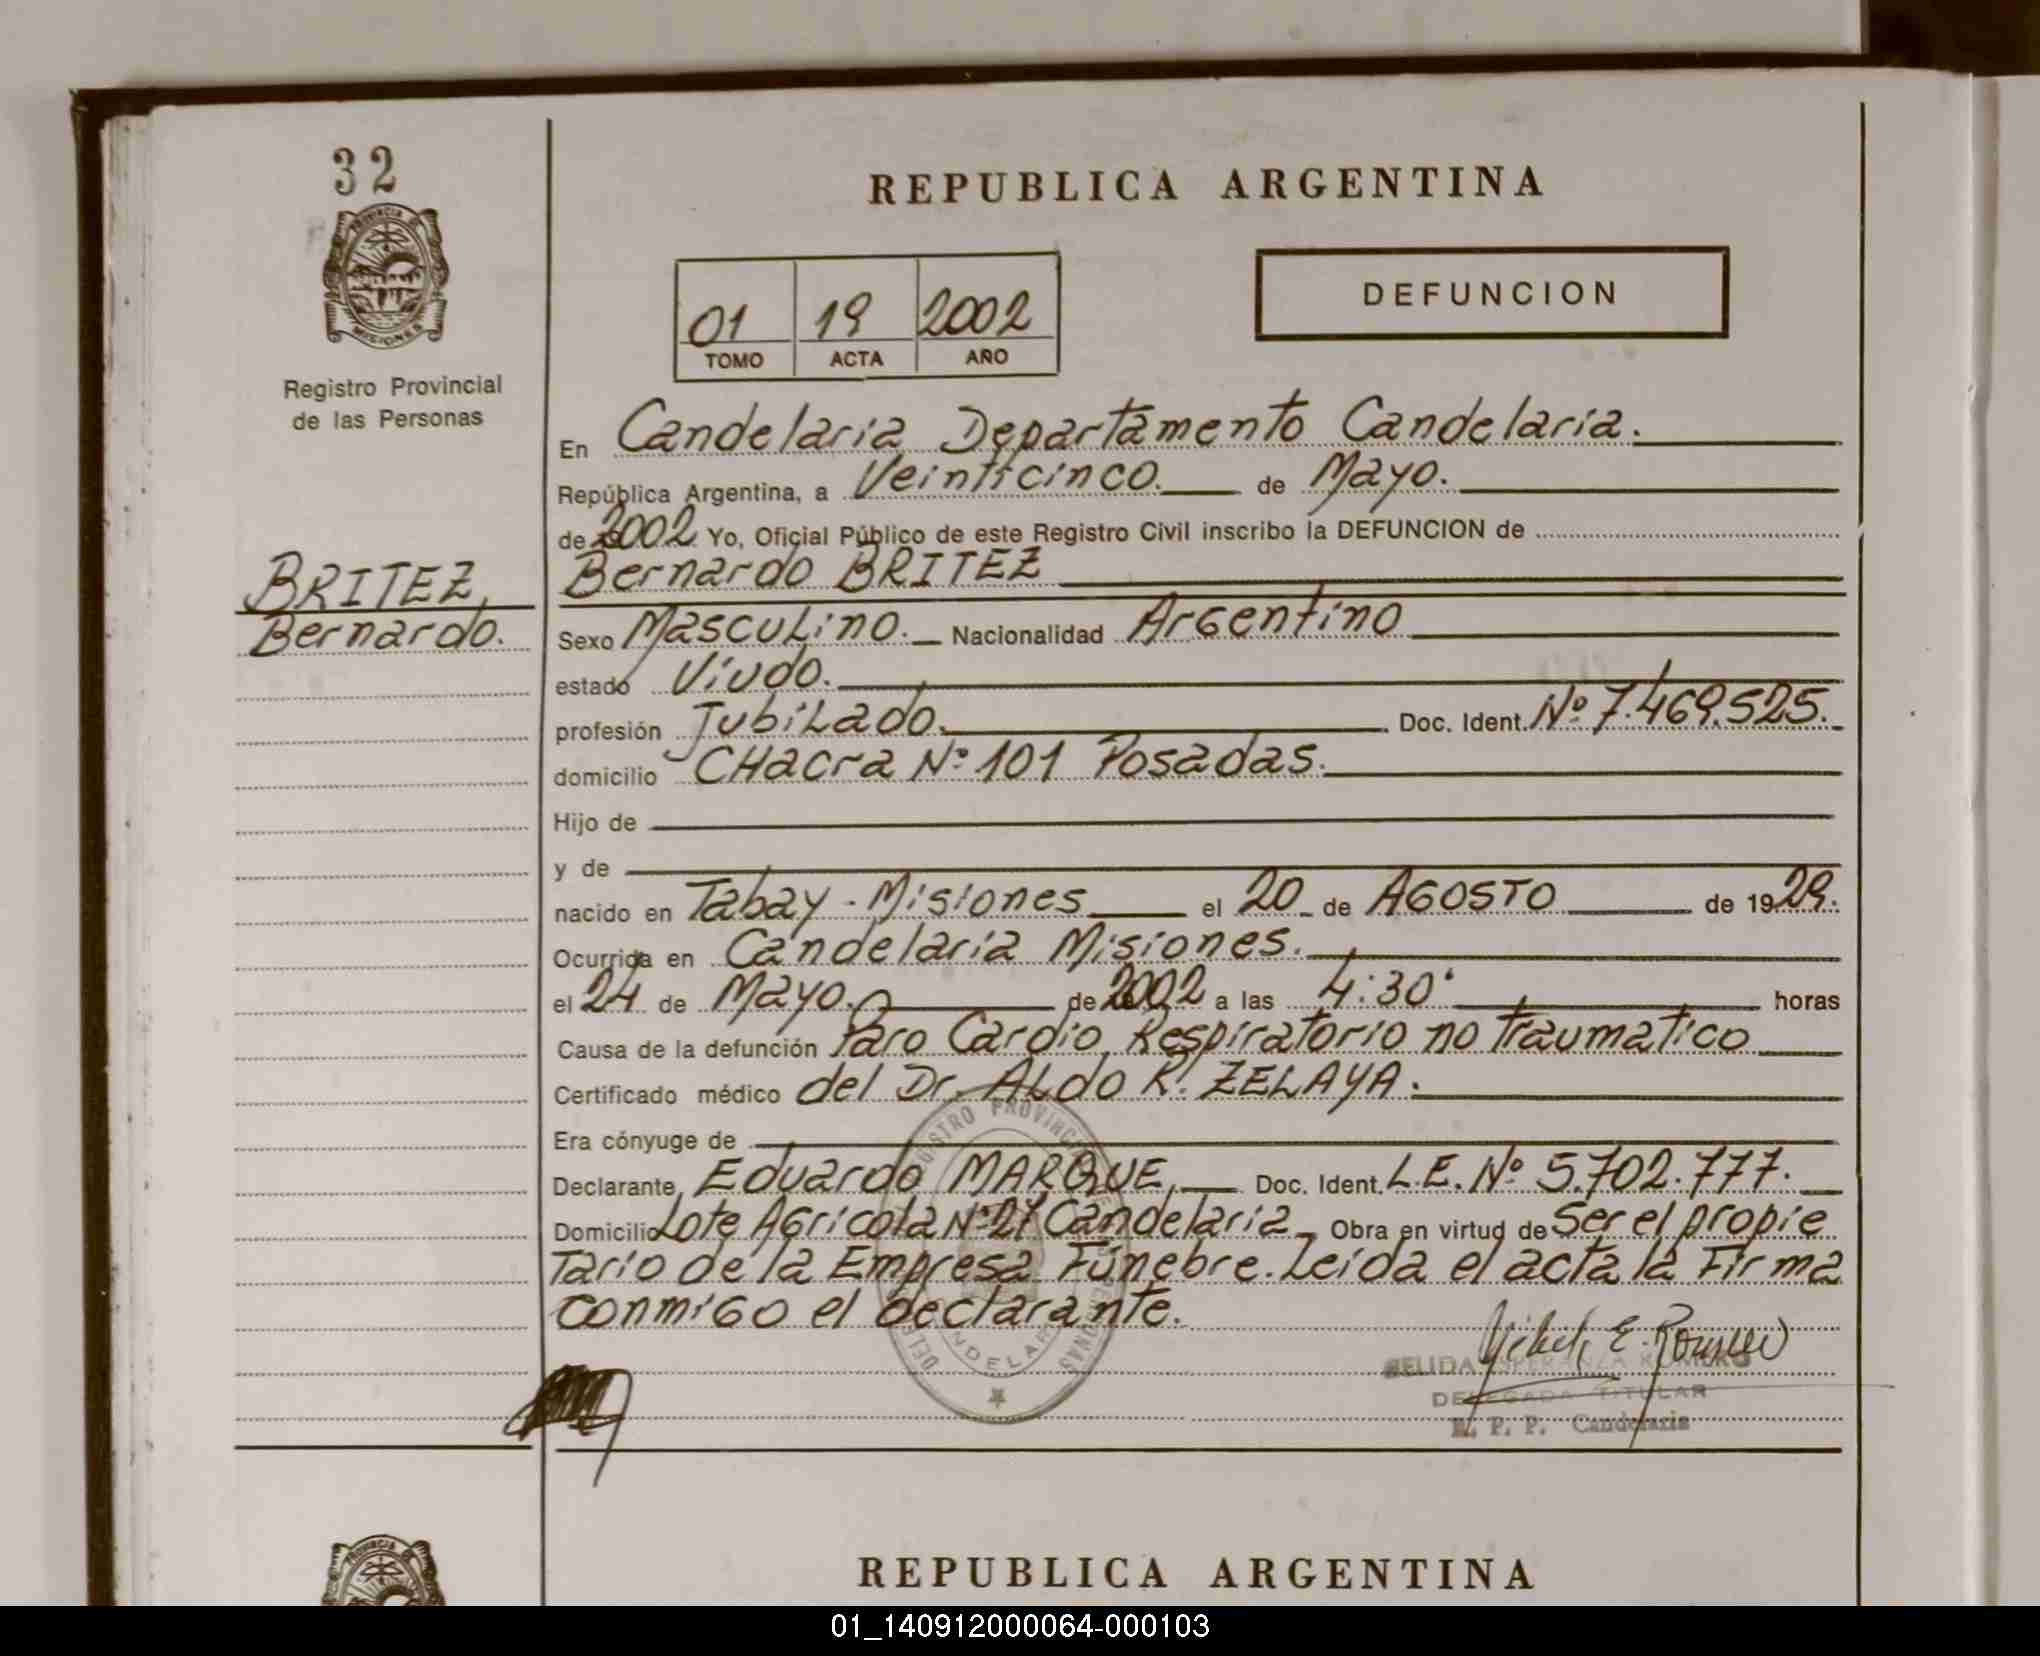 32
PROVINCIA DE
MISIONES
Registro Provincial
de las Personas
BRITEZ,
Bernardo.
REPUBLICA ARGENTINA
01 19 2002
TOMO ACTA AÑO
DEFUNCION
En Candelaria Departamento Candelaria.
República Argentina, a Veinticinco. de Mayo.
de 2002 Yo, Oficial Público de este Registro Civil inscribo la DEFUNCION de
Bernardo BRITEZ
Sexo Masculino. Nacionalidad Argentino
estado Viudo.
profesión Jubilado. Doc. Ident. Nº 7.469.525.
domicilio CHacra Nº 101 Posadas.
Hijo de
y de
nacido en Tabay - Misiones el 20 de AGOSTO de 1929.
Ocurrida en Candelaria Misiones.
el 24 de Mayo. de 2002 a las 4:30 horas
Causa de la defunción Paro Cardio Respiratorio no traumatico
Certificado médico del Dr. ALdo R. ZELAYA.
Era cónyuge de
Declarante, Eduardo MARQUE, Doc. Ident. L.E. Nº 5.702.777.
Domicilio Lote Agricola Nº Candelaria Obra en virtud de Ser el propie
tario de la Empresa Fúnebre. Leida el acta la Firma
conmigo el declarante.
REGISTRO PROVINCIAL DE LAS PERSONAS
CANDELARIA
ESPERANZA ROMERO
DELEGADA TITULAR
R. P. P. Candelaria
PROVINCIA DE
REPUBLICA ARGENTINA
01_140912000064-000103